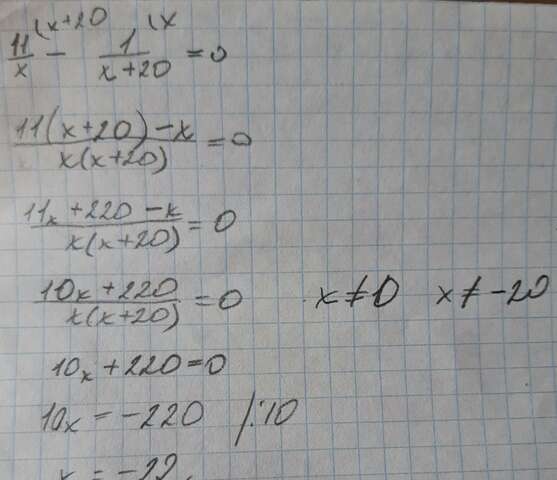 11/x (x+20 − 1/(x+20) (x = 0
(11(x+20)−x)/(x(x+20)) = 0
(11x+220−x)/(x(x+20)) = 0
(10x+220)/(x(x+20)) = 0 x≠0 x≠−20
10x+220=0
10x = −220 /:10
x = −22.